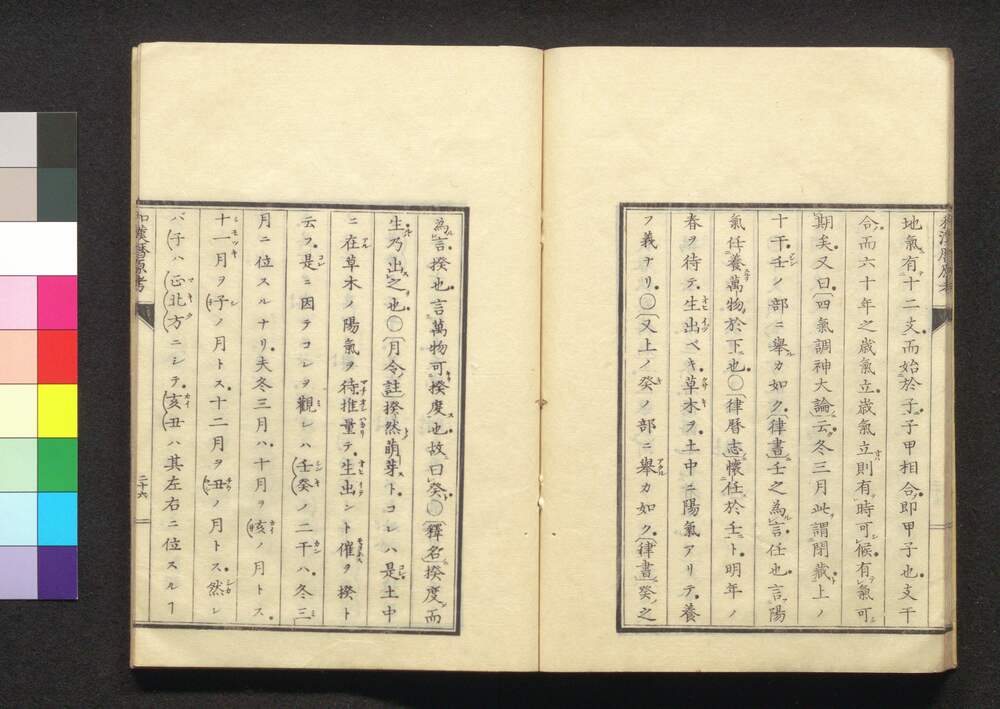 地氣有十二支而始於子子甲相合即甲子也支干
合而六十年之歳氣立歳氣立則有時可候有氣可
期矣又曰四氣調神大論云冬三月此謂閉藏上ノ
十干壬ノ部ニ舉カ如ク律書壬之為言任也言陽
氣任養萬物於下也〇律暦志懷任於壬ト明年ノ
春ヲ待テ生出ベキ草木ヲ土中ニ陽氣アリテ養
フ義ナリ〇又上ノ癸ノ部ニ舉カ如ク律書癸之
為言揆也言萬物可揆度也故曰癸〇釋名揆度而
生乃出之也〇月令註揆然萌芽トコレハ是土中
ニ在草木ノ陽氣ヲ待推量テ生出ント催ヲ揆ト
云フ是ニ因テコレヲ觀レハ壬癸ノ二干ハ冬三
月ニ位スルナリ夫冬三月ハ十月ヲ亥ノ月トス
十一月ヲ子ノ月トス十二月ヲ丑ノ月トス然レ
バ子ハ正北方ニシテ亥丑ハ其左右ニ位スルヿ
和漢暦原考
二十六